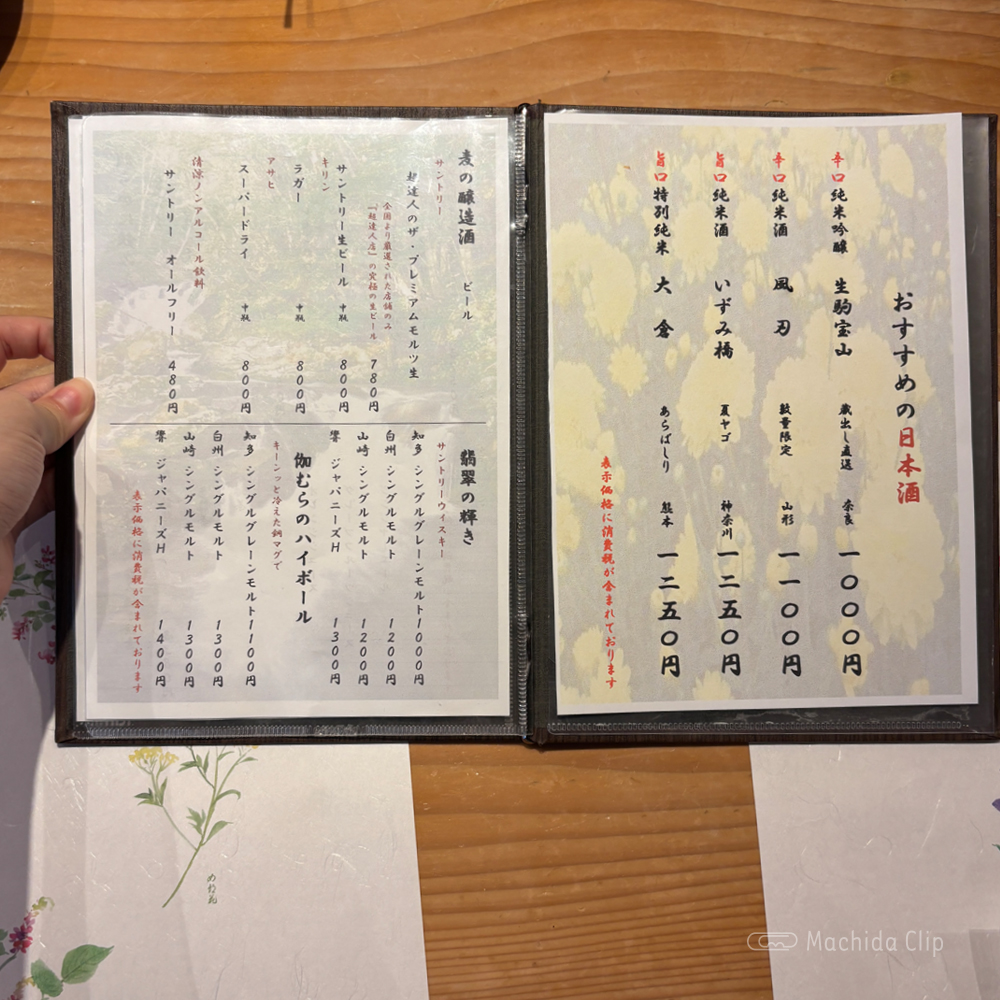 おすすめの日本酒
辛口 純米吟醸 生駒宝山 蔵出し直送 奈良 一〇〇〇円
辛口 純米酒 風刃 数量限定 山形 一一〇〇円
旨口 純米酒 いずみ橋 夏ヤゴ 神奈川 一二五〇円
旨口 特別純米 大倉 あらばしり 熊本 一二五〇円
表示価格に消費税が含まれております
麦の醸造酒 ビール
サントリー
超達人のザ・プレミアムモルツ生 780円
全国より厳選された店舗のみ
「超達人店」の究極の生ビール
サントリー生ビール 中瓶 800円
キリン
ラガー 中瓶 800円
アサヒ
スーパードライ 中瓶 800円
清涼ノンアルコール飲料
サントリー オールフリー 480円
翡翠の輝き
サントリーウィスキー
知多 シングルグレーンモルト1000円
白州 シングルモルト 1200円
山崎 シングルモルト 1200円
響 ジャパニーズH 1300円
伽むらのハイボール
キーンッと冷えた銅マグで
知多 シングルグレーンモルト1100円
白州 シングルモルト 1300円
山崎 シングルモルト 1300円
響 ジャパニーズH 1400円
表示価格に消費税が含まれております
Machida Clip